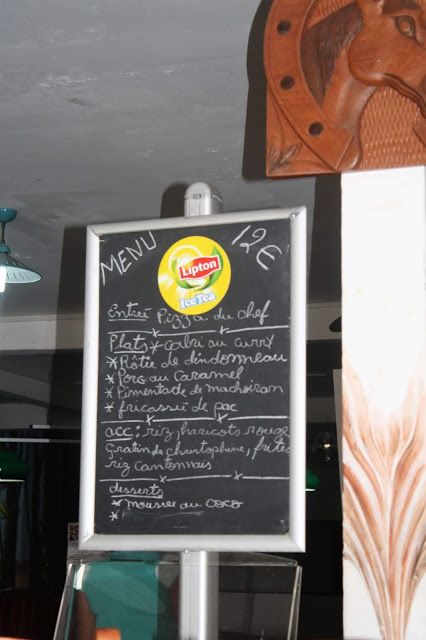 MENU 12€
Lipton
Ice Tea
Entreé Pizza du chef
Plats * Cabri au curry
* Rôtie de dindonneau
* Porc au Caramel
* Pimentade de machoiran
* fricasseé de pac
acc: riz, haricots rouge
Gratin de christophine, frites
riz cantonnais
desserts
* mousse au coco
*